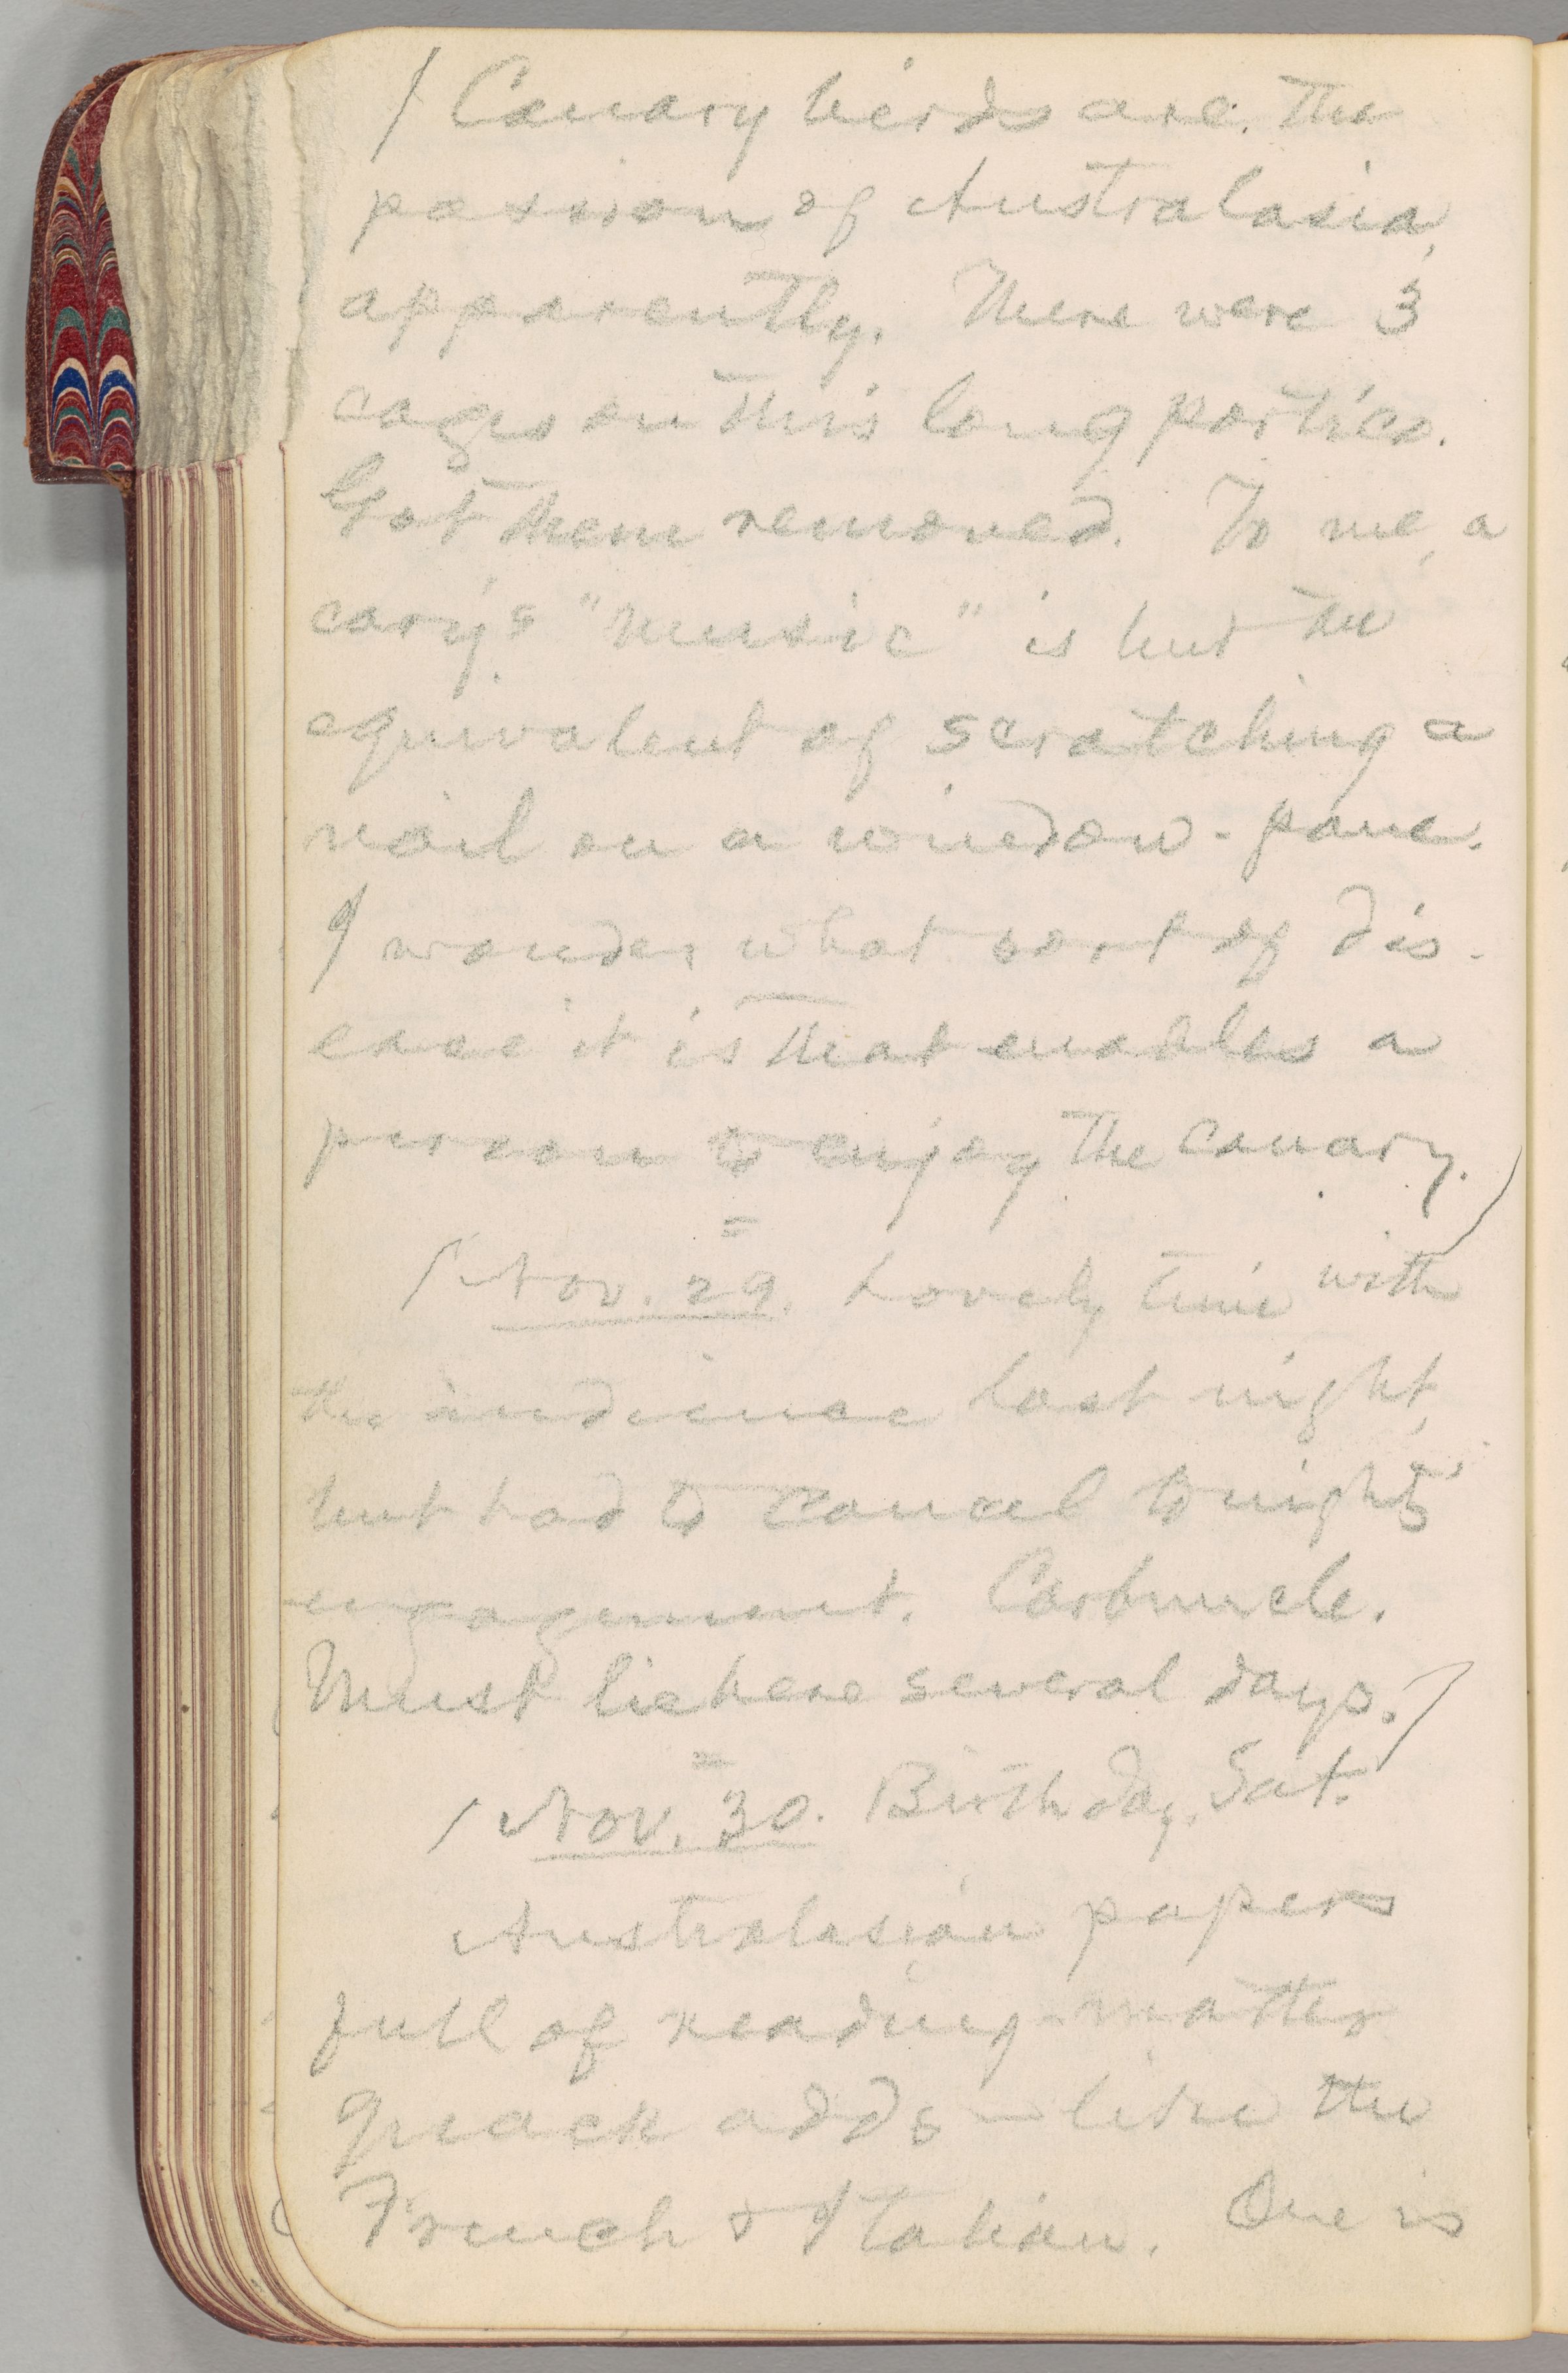 / Canary birds are the
passion of Australasia,
apparently. There were 3
cages on this long portico.
Got them removed. To me, a
cary's "music" is but the
equivalent of scratching a
nail on a window-pane.
I wonder what sort of dis-
ease it is that enables a
person to enjoy the canary. /
=
/ Nov. 29. Lovely time with
the audience last night,
but had to cancel to-night's
engagement. Carbuncle.
Must lie here several days. /
=
/ Nov. 30. Birthday. Sat.
Australasian papers
full of reading-matter
quack adds — like the
French & Italian. One is